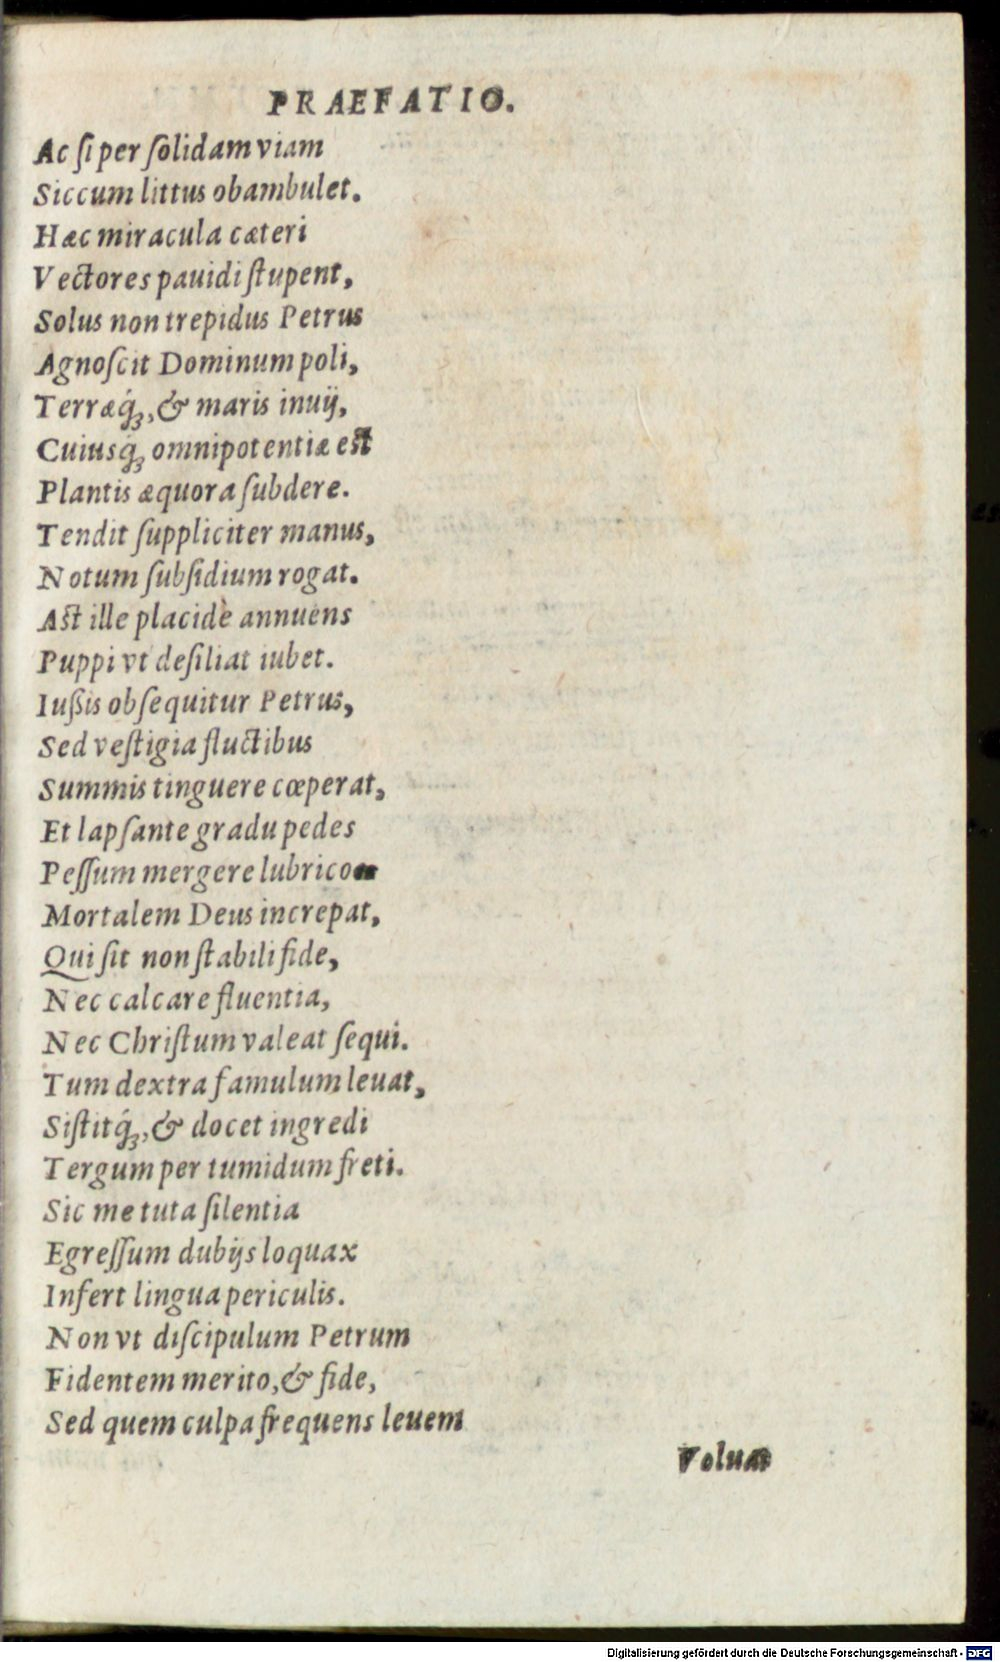 PRAEFATIO.
Ac ſi per ſolidam viam
Siccum littus obambulet.
Hæc miracula cæteri
Vectores pauidi ſtupent,
Solus non trepidus Petrus
Agnoſcit Dominum poli,
Terræq́ꝫ, & maris inuij,
Cuiusq́ꝫ omnipotentiæ est
Plantis æquora ſubdere.
Tendit ſuppliciter manus,
Notum ſubſidium rogat.
Ast ille placidè annuens
Puppi vt deſiliat iubet.
Iußis obſequitur Petrus,
Sed veſtigia fluctibus
Summis tinguere cœperat,
Et lapſante gradu pedes
Peſſum mergere lubrico
Mortalem Deus increpat,
Qui ſit non ſtabili fide,
Nec calcare fluentia,
Nec Chriſtum valeat ſequi.
Tum dextra famulum leuat,
Siſtitq́ꝫ, & docet ingredi
Tergum per tumidum freti.
Sic me tuta ſilentia
Egreſſum dubijs loquax
Infert lingua periculis.
Non vt diſcipulum Petrum
Fidentem merito, & fide,
Sed quem culpa frequens leuem
Voluat
Digitalisierung gefördert durch die Deutsche Forschungsgemeinschaft - DFG